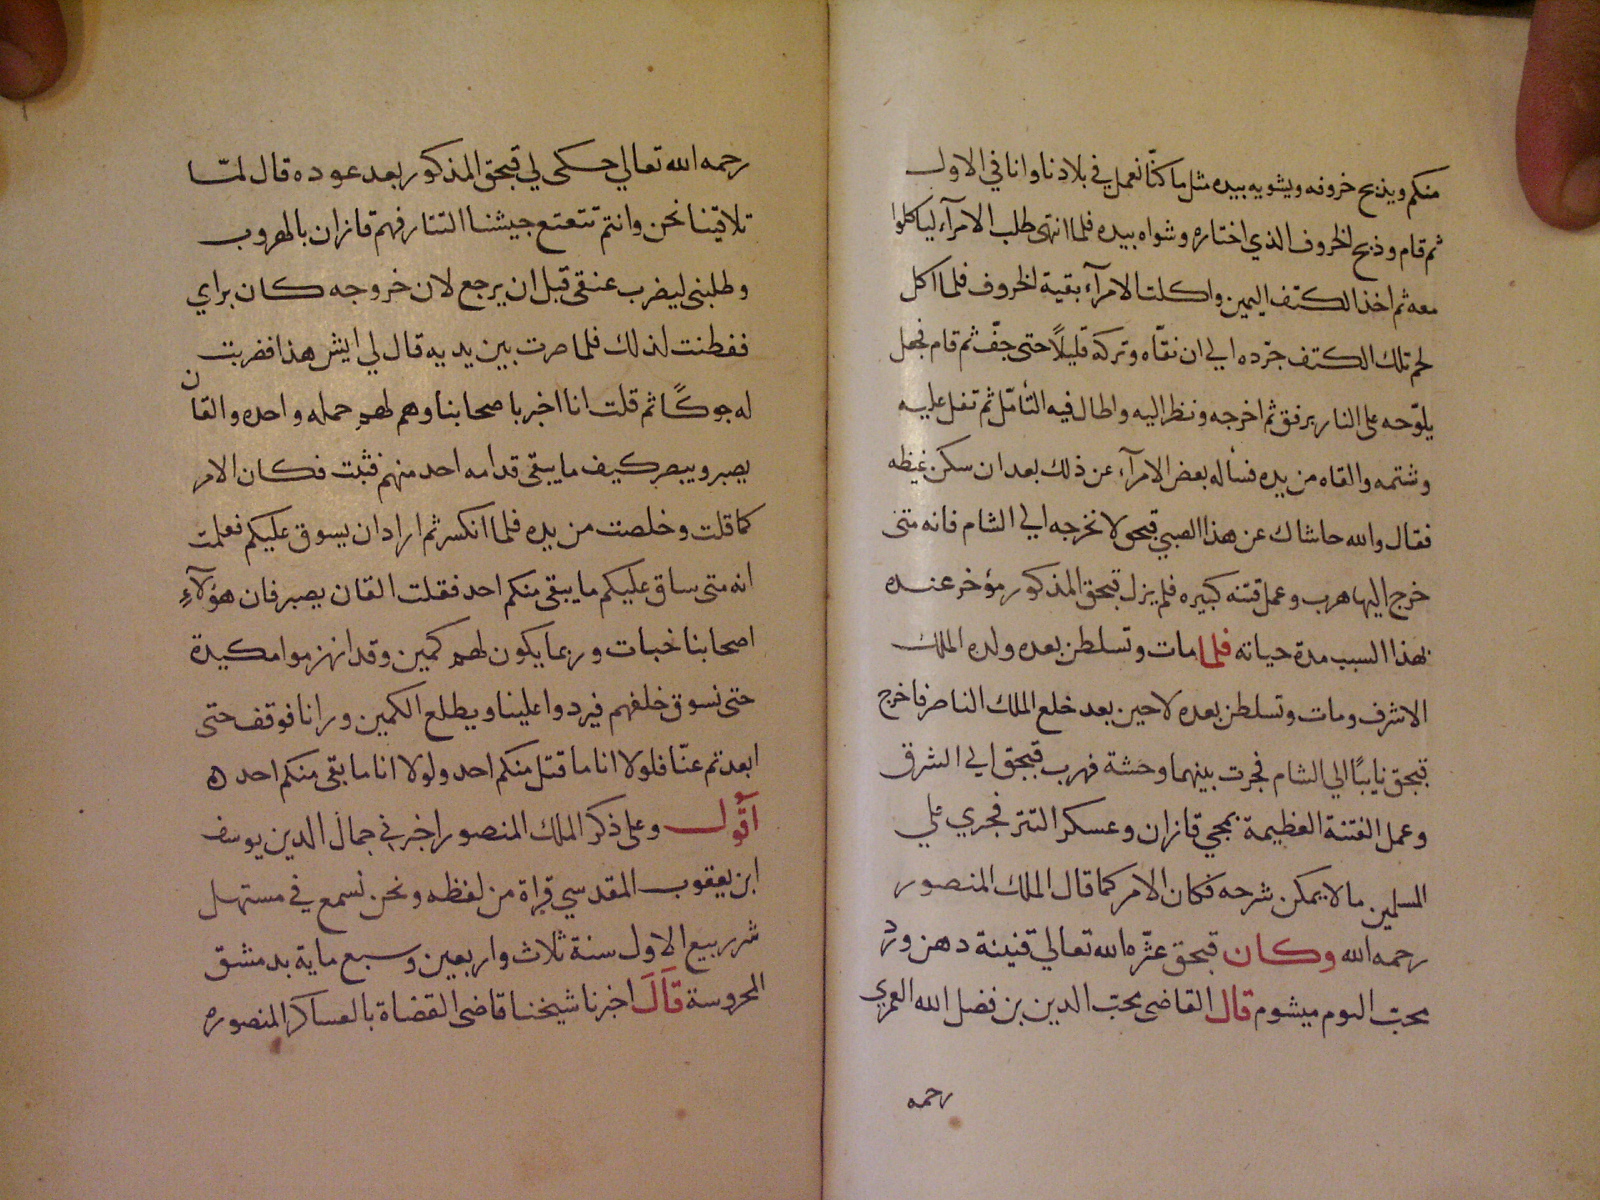 منكم ويذبح خروفه ويشويه بيده مثل ما كنّا نعمل في بلادنا وانا في الاول
ثم قام وذبح الخروف الذي اختاره وشواه بيده فلما انتهى طلب الامرآء لياكلوا
معه ثم اخذ الكتف اليمين واكلت الامرآء بقية الخروف فلما اكل
لحم تلك الكتف جرّده الي ان نقّاه وتركه قليلاً حتى جفّ ثم قام فجعل
يلوّحه على النار برفق ثم اخرجه ونظر اليه واطال فيه التأمّل ثم تفل عليه
وشتمه والقاه من يده فسأله بعض الامرآء عن ذلك بعد ان سكن غيظه
فقال والله حاشاك عن هذا الصبي قبجق لا نخرجه الي الشام فانه متى
خرج اليها هرب وعمل فتنه كبيره فلم يزل قبجق المذكور مؤخر عنده
بهذا السبب مدة حياته فلما مات وتسلطن بعده ولده الملك
الاشرف ومات وتسلطن بعده لاحين بعد خلع الملك الناصر فاخرج
قبجق نايبًا الي الشام فجرت بينهما وحشة فهرب قبجق الي الشرق
وعمل الفتنة العظيمة بمجي قازان وعسكر التتر فجري علي
المسلمين ما لا يمكن شرحه فكان الامر كما قال الملك المنصور
رحمه الله وكان قبجق عثّره الله تعالي قنينة دهن ورد
بحبّ البوم ميشوم قال القاضى محبّ الدين بن فضل الله العمري
رحمه
رحمه الله تعالي حكى لي قبجق المذكور بعد عوده قال لمّا
تلاقينا نحن وانتم تتعتع جيشنا التتار فهم قازان بالهروب
وطلبنى ليضرب عنقى قبل ان يرجع لان خروجه كان براي
ففطنت لذلك فلما صرت بين يديه قال لي ايش هذا فضربت
له جوكًا ثم قلت انا اخبر باصحابنا وهم لهم حمله واحده والقان
يصبر ويبصر كيف ما يبقى قدامه احد منهم فثبت فكان الامر
كما قلت وخلصت من يده فلما انكسر ثم اراد ان يسوق عليكم فعلمت
انه متى ساق عليكم ما يبقى منكم احد فقلت القان يصبر فان هؤلآءِ
اصحابنا خبات وربما يكون لهم كمين وقد انهزموا مكيدة
حتى نسوق خلفهم فيردوا علينا ويطلع الكمين ورانا فوقف حتى
ابعدتم عنّا فلولا انا ما قتل منكم احد ولولا انا ما بقى منكم احد ه
اقول وعلى ذكر الملك المنصور اخبرني جمال الدين يوسف
ابن يعقوب المقدسي قراة من لفظه ونحن نسمع في مستهل
شهر ربيع الاول سنة ثلاث واربعين وسبع ماية بدمشق
المحروسة قَالَ اخبرنا شيخنا قاضى القضاة بالعساكر المنصوره